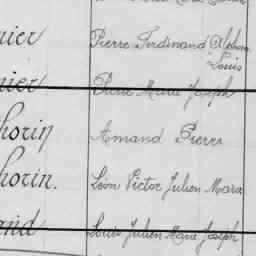 nier Pierre Ferdinand Alphonse
Louis
nier Pierre Marie Joseph
horin Amand Pierre
horin. Léon Victor Julien Marie
and Louis Julien Marie Joseph